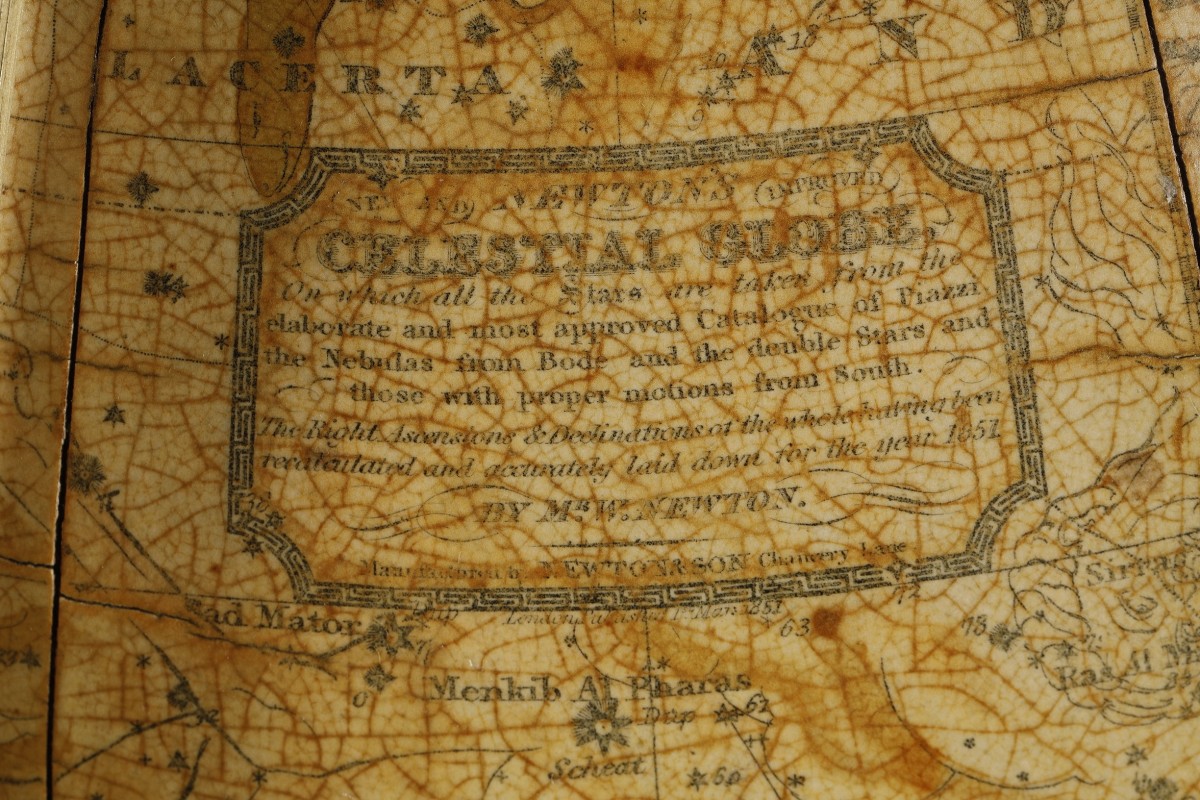 LACERTA
AND
18
10
9
NEW AND NEWTON'S IMPROVED
CELESTIAL GLOBE,
On which all the Stars are taken from the
elaborate and most approved Catalogue of Piazzi
the Nebulas from Bode and the double Stars and
those with proper motions from South.
The Right Ascensions & Declinations of the whole having been
recalculated and accurately laid down for the year 1851
BY Mr. W. NEWTON.
Manufactured by NEWTON & SON Chancery Lane
London, Published 1st Mar. 1851
72
63
78
Sad Mator
Menkib Al Pharas
Dup
61
Scheat
Ras Al